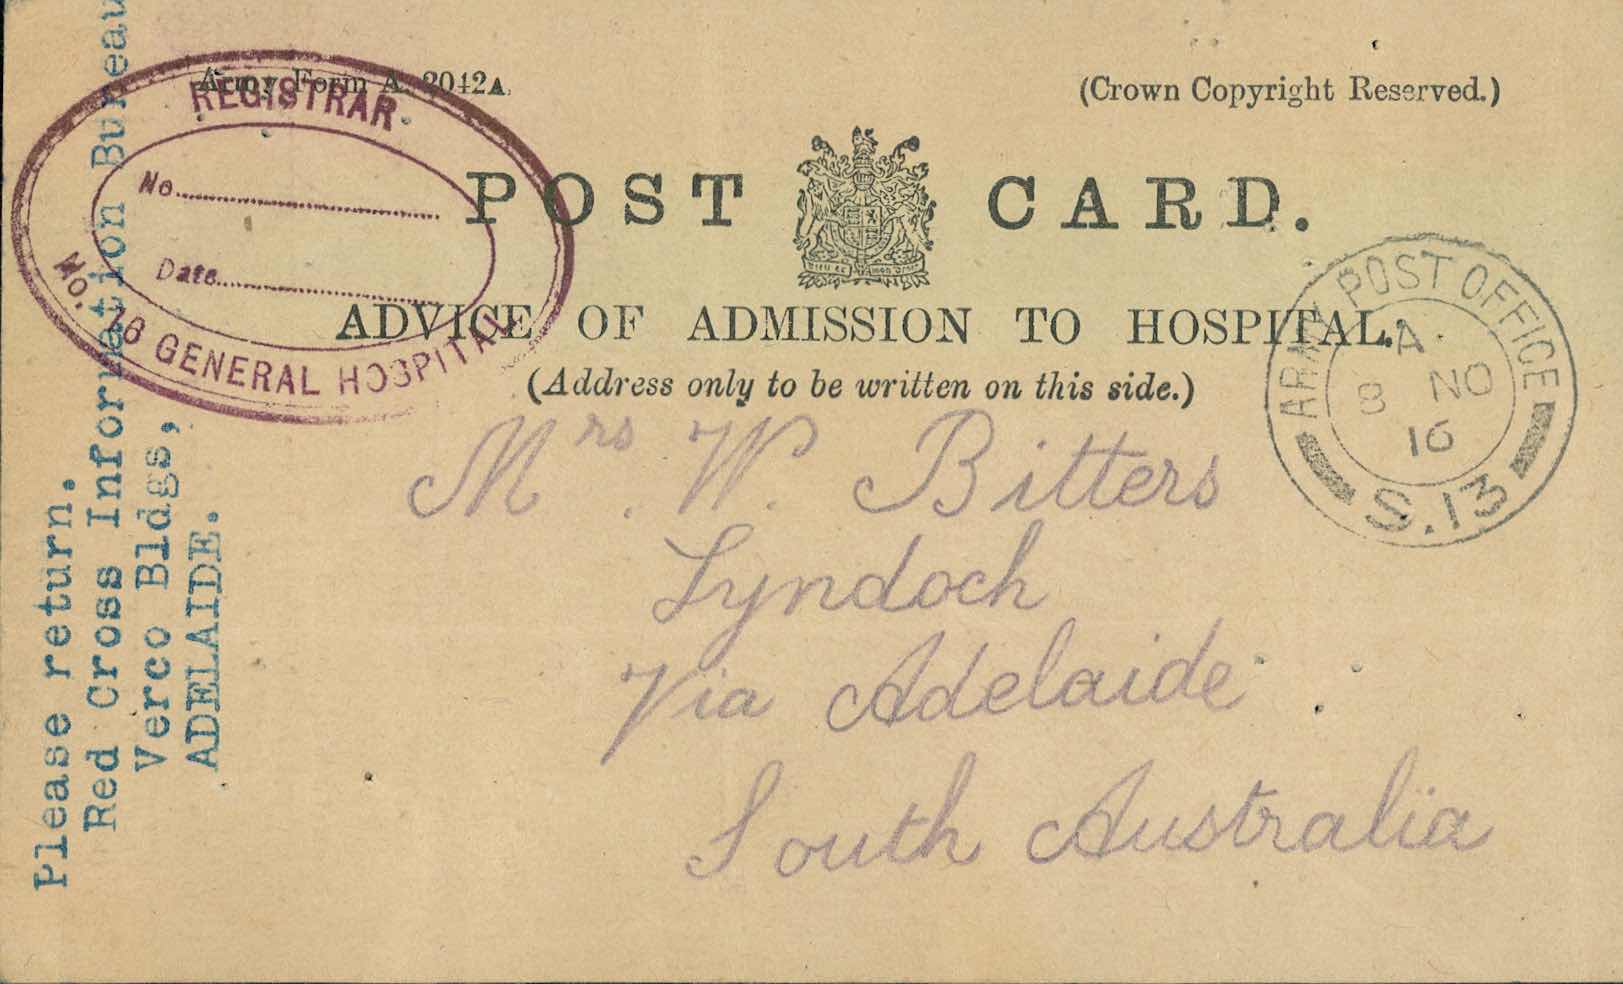 Army Form A. 2042A.
(Crown Copyright Reserved.)
POST CARD.
DIEU ET MON DROIT
ADVICE OF ADMISSION TO HOSPITAL.
(Address only to be written on this side.)
Mrs. W. Bitters
Lyndoch
Via Adelaide
South Australia
REGISTRAR
No.
Date
No. GENERAL HOSPITAL
ARMY POST OFFICE
A
8 NO
16
S.13
Please return.
Red Cross Information Bureau
Verco Bldgs,
ADELAIDE.